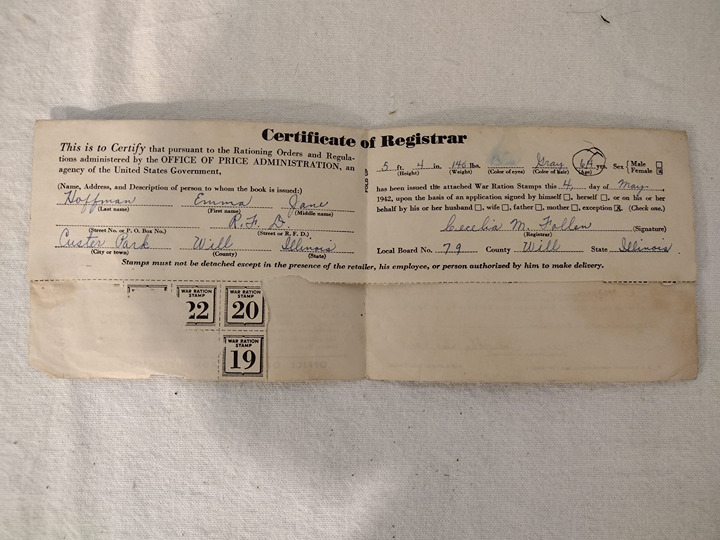 Certificate of Registrar
This is to Certify that pursuant to the Rationing Orders and Regula-
tions administered by the OFFICE OF PRICE ADMINISTRATION, an
agency of the United States Government,
(Name, Address, and Description of person to whom the book is issued:)
Hoffman Emma Jane
(Last name) (First name) (Middle name)
R. F. D.
(Street No. or P. O. Box No.) (Street or R. F. D.)
Custer Park Will Illinois
(City or town) (County) (State)
FOLD UP
5 ft. 4 in. 146 lbs. Gray 64 yrs. Sex { Male
Female
(Height) (Weight) (Color of eyes) (Color of hair) (Age)
has been issued the attached War Ration Stamps this 4 day of May
1942, upon the basis of an application signed by himself ☐, herself ☐, or on his or her
behalf by his or her husband ☐, wife ☐, father ☐, mother ☐, exception ☒. (Check one.)
Cecelia M. Fallen (Signature)
(Registrar)
Local Board No. 79 County Will State Illinois
Stamps must not be detached except in the presence of the retailer, his employee, or person authorized by him to make delivery.
WAR RATION
STAMP
22
WAR RATION
STAMP
20
WAR RATION
STAMP
19